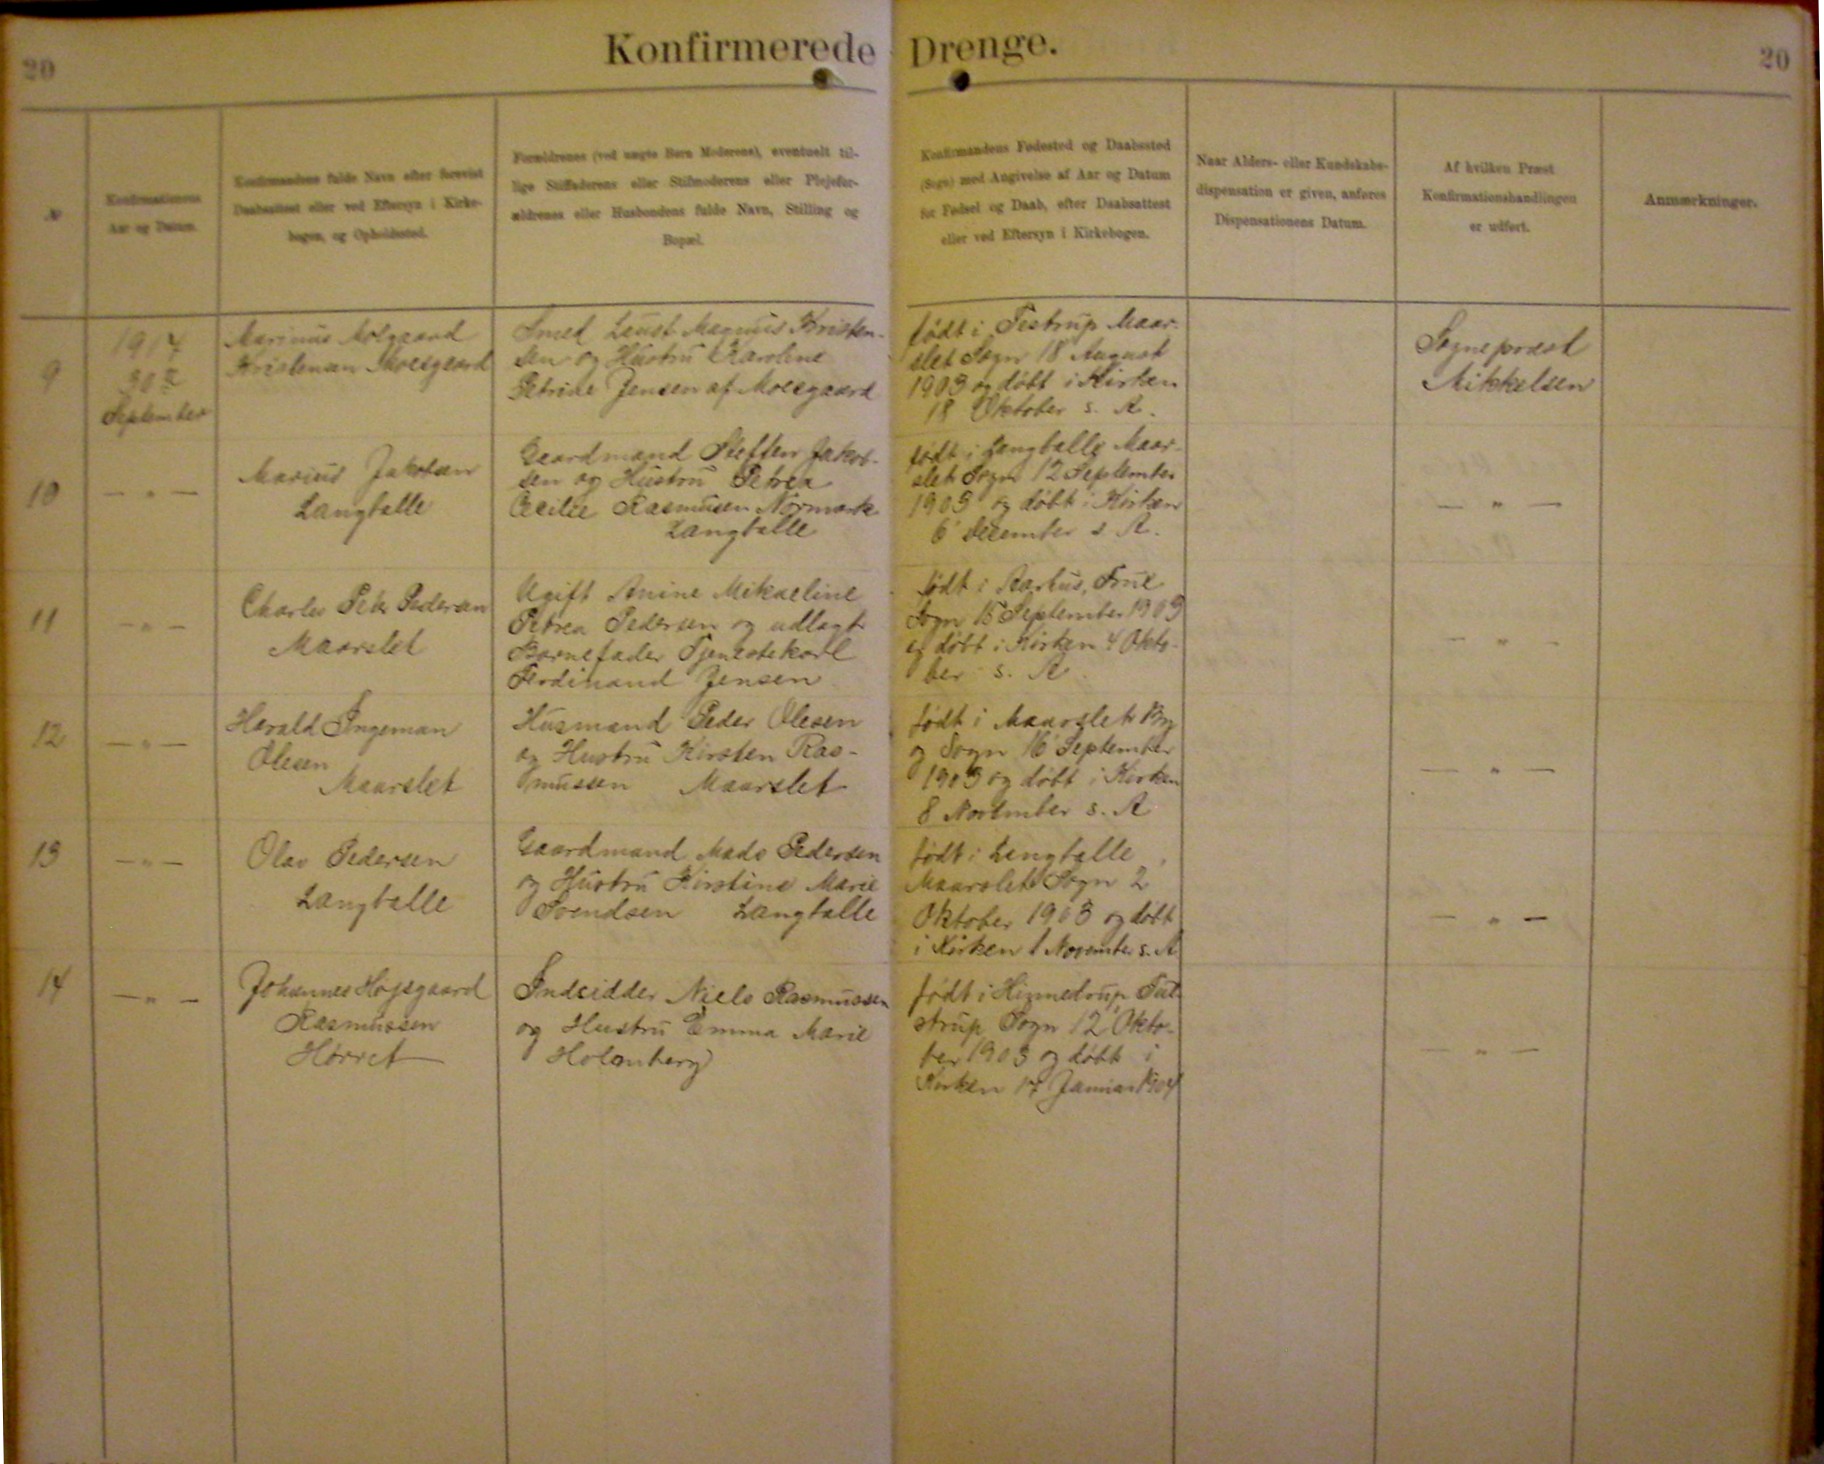 20
Konfirmerede Drenge.
20
№
Konfirmationens
Aar og Datum.
Konfirmandens fulde Navn efter forevist
Daabsattest eller ved Eftersyn i Kirke-
bogen, og Opholdssted.
Forældrenes (ved uægte Børn Moderens), eventuelt til-
lige Stiffaderens eller Stifmoderens eller Plejefor-
ældrenes eller Husbondens fulde Navn, Stilling og
Bopæl.
Konfirmandens Fødested og Daabssted
(Sogn) med Angivelse af Aar og Datum
for Fødsel og Daab, efter Daabsattest
eller ved Eftersyn i Kirkebogen.
Naar Alders- eller Kundskabs-
dispensation er given, anføres
Dispensationens Datum.
Af hvilken Præst
Konfirmationshandlingen
er udført.
Anmærkninger.
9
1917
30
September
Marinus Molgaard
Kristensen Moesgaard
Smed Laust Magnus Kristen-
sen og Hustru Karoline
Petrine Jensen af Moesgaard
født i Testrup Maar-
slet Sogn 18 August
1903 og døbt i Kirken
18 Oktober s. A.
Sognepræst
Mikkelsen
10
— " —
Marius Jakobsen
Langballe
Gaardmand Steffen Jakob-
sen og Hustru Petrea
Cecilie Rasmussen Normark
Langballe
født i Langballe Maar-
slet Sogn 12 September
1903 og døbt i Kirken
6 December s. A.
— " —
11
— " —
Charles Peter Pedersen
Maarslet
Ugift Anine Mikaeline
Petrea Pedersen og udlagt
Barnefader Tjenestekarl
Ferdinand Jensen
født i Aarhus, Frue
Sogn 15 September 1903
og døbt i Kirken 4 Okto-
ber s. A.
— " —
12
— " —
Harald Ingeman
Olesen
Maarslet
Husmand Peder Olesen
og Hustru Kirsten Ras-
mussen Maarslet
født i Maarslet By
og Sogn 16 September
1903 og døbt i Kirken
8 November s. A
— " —
13
— " —
Olav Pedersen
Langballe
Gaardmand Mads Pedersen
og Hustru Kirstine Marie
Svendsen Langballe
født i Langballe
Maarslet Sogn 2
Oktober 1903 og døbt
i Kirken 1 November s. A
— " —
14
— " —
Johannes Højsgaard
Rasmussen
Hørret
Indsidder Niels Rasmussen
og Hustru Emma Marie
Holmberg
født i Hinnedrup Tul-
strup Sogn 12 Okto-
ber 1903 og døbt i
Kirken 17 Januar 1904
— " —